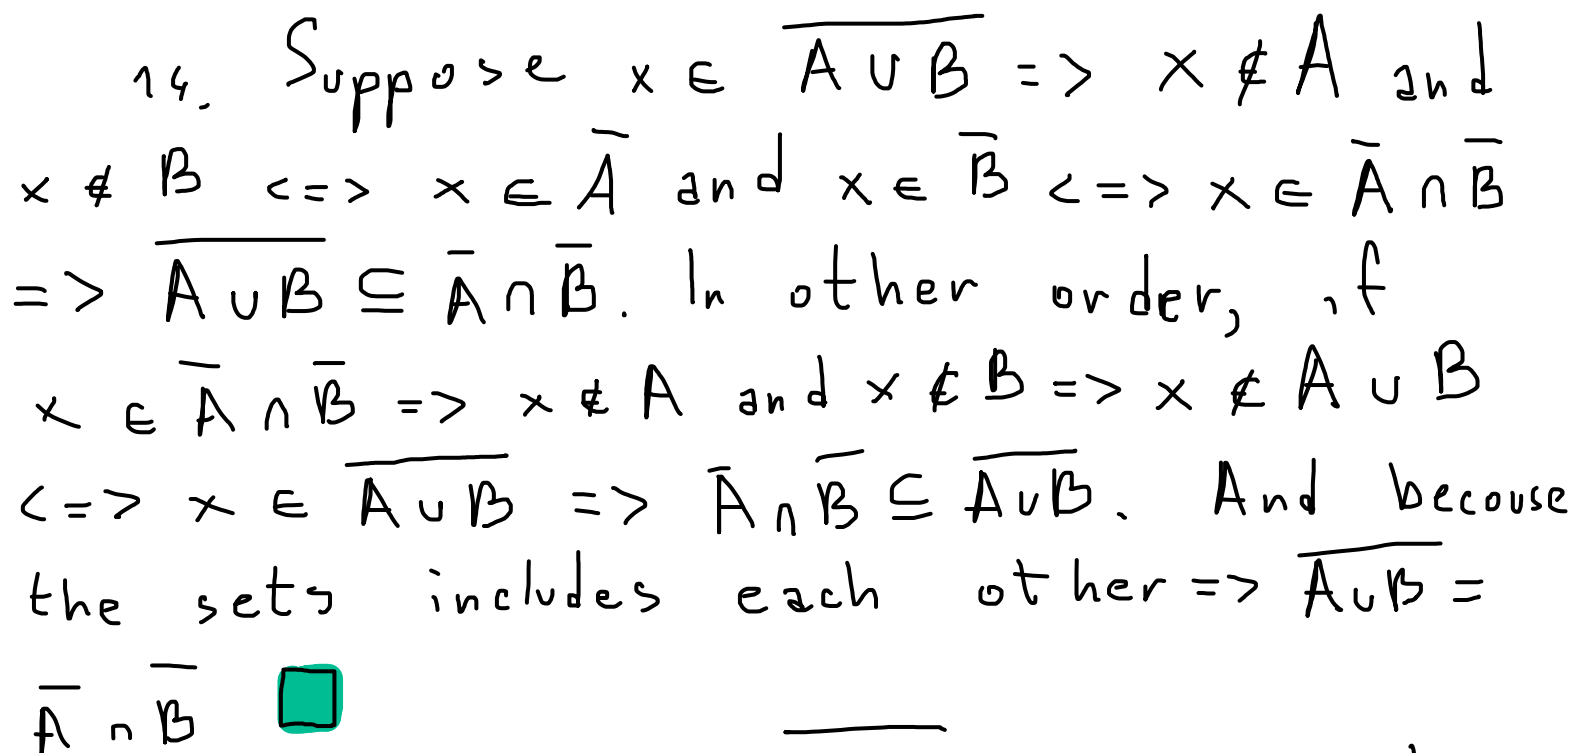 14. Suppose x ∈ \overline{A ∪ B} => x ∉ A and
x ∉ B <=> x ∈ \overline{A} and x ∈ \overline{B} <=> x ∈ \overline{A} ∩ \overline{B}
=> \overline{A ∪ B} ⊆ \overline{A} ∩ \overline{B}. In other order, if
x ∈ \overline{A} ∩ \overline{B} => x ∉ A and x ∉ B => x ∉ A ∪ B
<=> x ∈ \overline{A ∪ B} => \overline{A} ∩ \overline{B} ⊆ \overline{A ∪ B}. And becouse
the sets includes each other => \overline{A ∪ B} =
\overline{A} ∩ \overline{B}